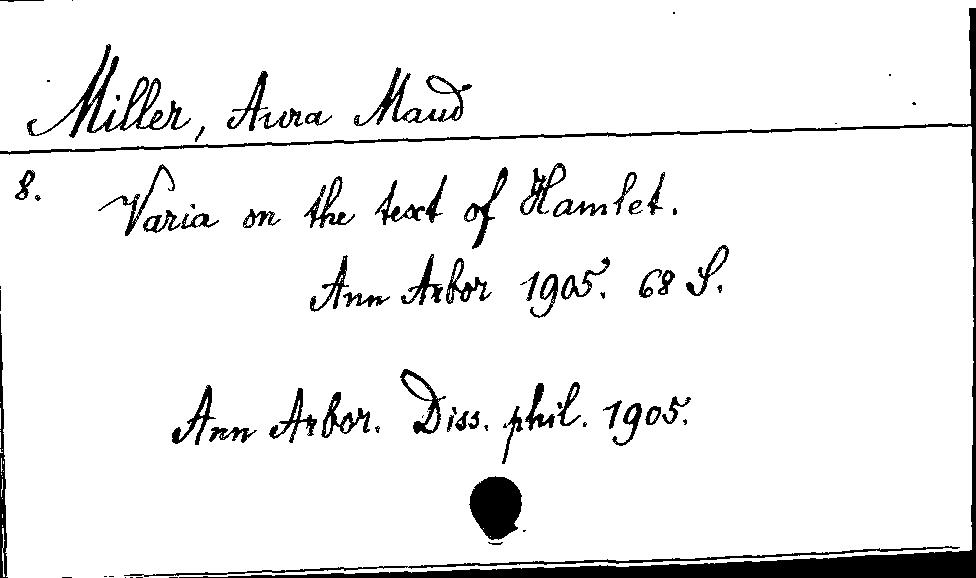 Miller, Aura Maud
8. Varia on the text of Hamlet.
Ann Arbor 1905. 68 S.
Ann Arbor. Diss. phil. 1905.